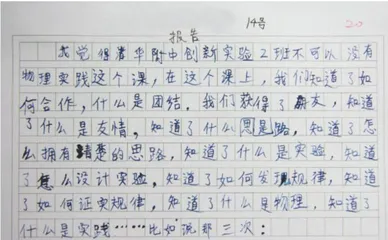 14号
20
报告
我觉得华附中创新实验2班不可以没有
物理实践这个课，在这个课上，我们知道了如
何合作，什么是团结。我们获得了朋友，知道
了什么是友情，知道了什么思路，知道了怎
么拥有清楚的思路，知道了什么是实验，知道
了怎么设计实验，知道了如何发现规律，知道
了如何证实规律，知道了什么是物理，知道了
什么是实践……比如说那三次：